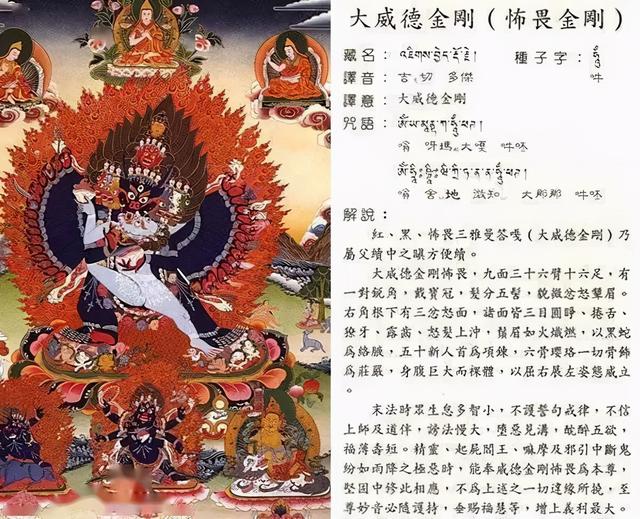 大威德金剛（怖畏金剛）
藏名：འཇིགས་བྱེད་རྡོ་རྗེ། 種子字：ཧཱུྃ
譯音：吉 切 多傑 吽
譯意：大威德金剛
咒語：
嗡 呀瑪 大嘎 吽呸
嗡 舍 地 溦知 大那那 吽呸
解說：
紅、黑、怖畏三雅曼答嘎（大威德金剛）乃
屬父續中之瞋方便續。
大威德金剛怖畏，九面三十六臂十六足，有
一對銳角，戴寶冠，髮分五髻，貌微忿怒顰眉。
右角根下有三忿怒面，諸面皆三目圓睜、捲舌、
獠牙、露齒、怒髮上沖，鬚眉如火熾燃，以黑蛇
為絡腋，五十新人首為項鍊，六骨瓔珞一切骨飾
為莊嚴，身腹巨大而裸體，以屈右展左姿態威立
。
末法時眾生怠多智小，不護誓句戒律，不信
上師及道伴，謗法慢大，墮惡見溝，酖醉五欲，
福薄壽短。精靈、起屍閻王、嘛摩及邪引中斷鬼
紛如雨降之極惡時，能奉威德金剛怖畏為本尊，
堅固中修此相應，不為上述之一切違緣所撓，至
尊妙音必隨護持，垂賜福慧等，增上義利最大。